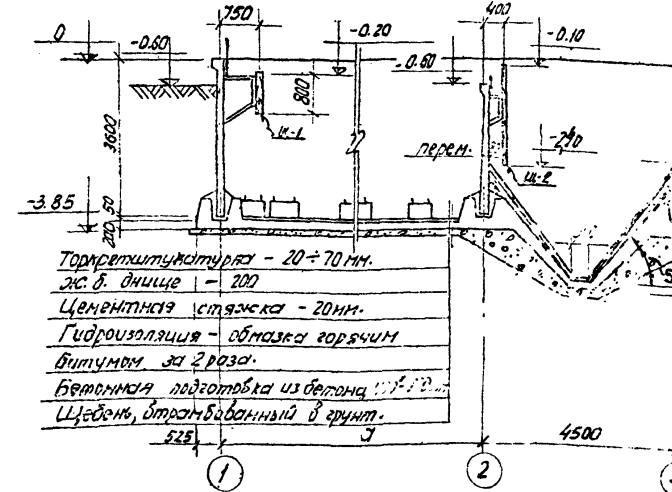 750
400
0
-0.60
-0.20
-0.60
-0.10
800
3600
Щ-1
перем.
-2.90
Щ-2
-3.85
50
200
Торкретштукатурка - 20÷70 мм.
ж.б. днище - 200
Цементная стяжка - 20мм.
Гидроизоляция - обмазка горячим
битумом за 2 раза.
Бетонная подготовка из бетона
Щебень, втрамбованный в грунт.
525
4500
1
2